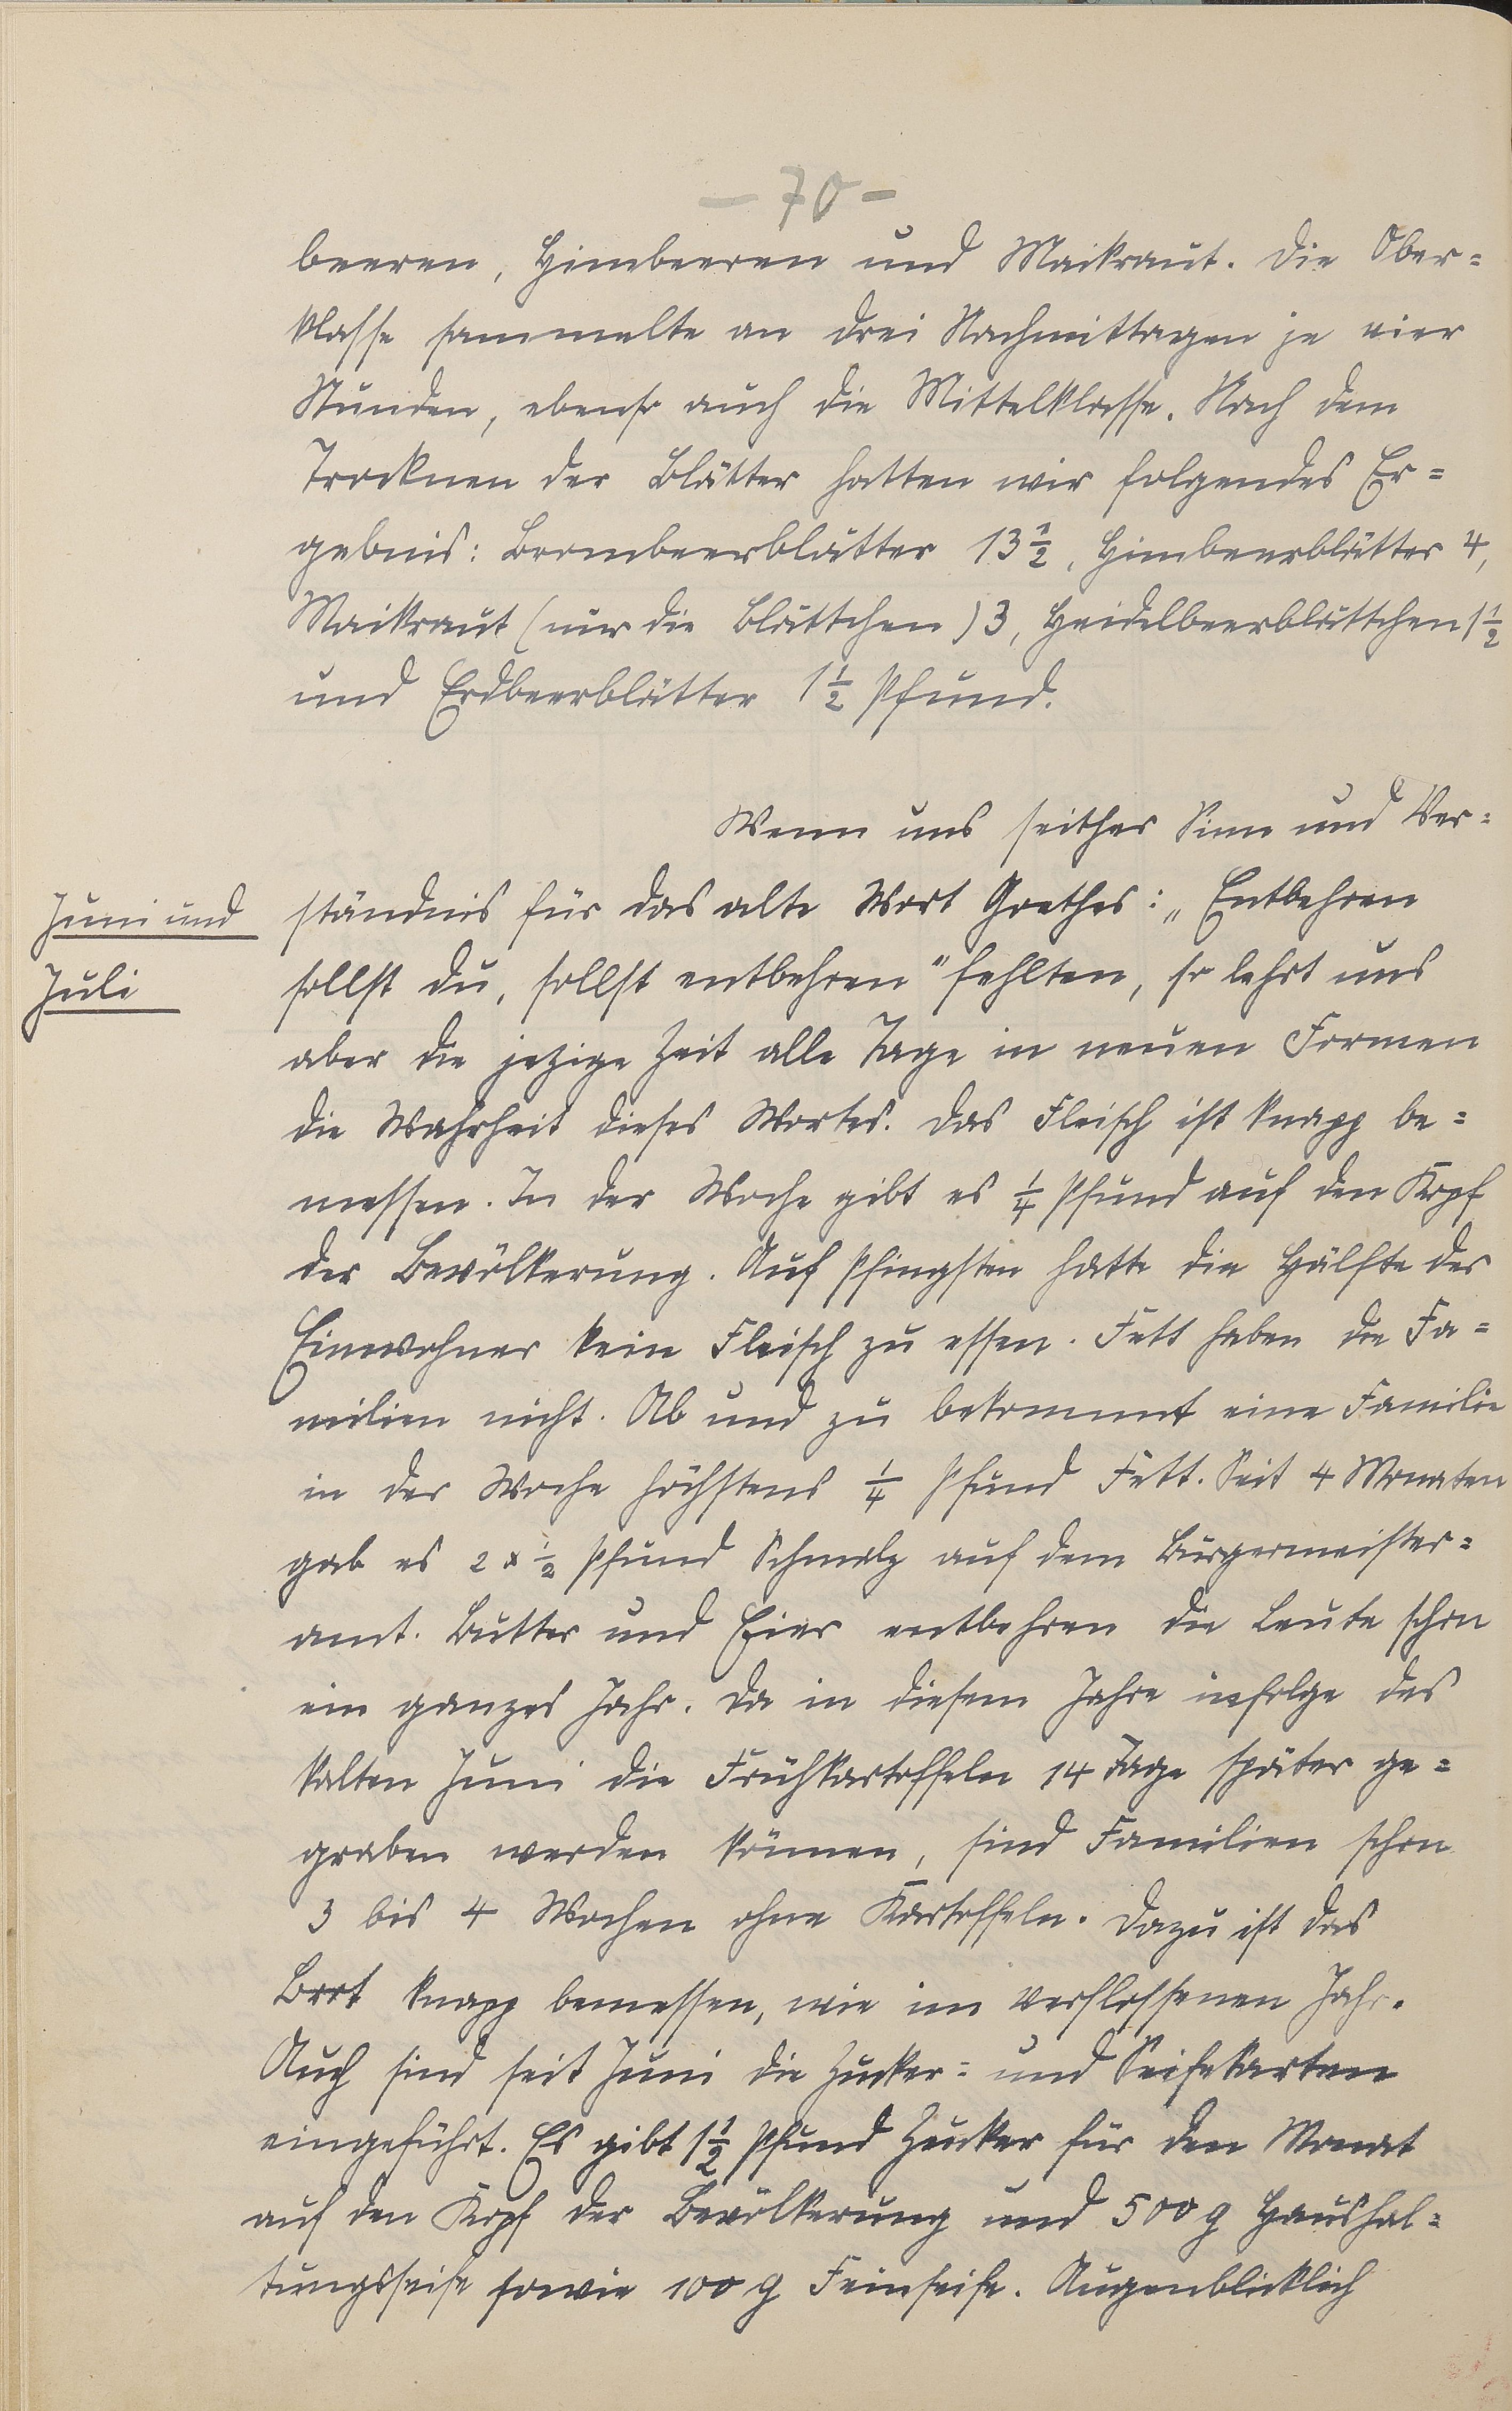 — 70 —
beeren, Himbeeren und Maikraut. Die Ober=
klasse sammelte an drei Nachmittagen je vier
Stunden, ebenso auch die Mittelklasse. Nach dem
Trocknen der Blätter hatten wir folgendes Er=
gebnis: Brombeerblätter 13 1/2, Himbeerblätter 4,
Maikraut (nur die Blättchen) 3, Heidelbeerblättchen 1 1/2
und Erdbeerblätter 1 1/2 Pfund.
Wenn uns seither Sinn und Ver=
Juni und
Juli
ständnis für das alte Wort Goethes: „Entbehren
sollst du, sollst entbehren" fehlten, so lehrt uns
aber die jezige Zeit alle Tage in neuen Formen
die Wahrheit dieses Wortes. Das Fleisch ist knapp be=
messen. In der Woche gibt es 1/4 Pfund auf den Kopf
der Bevölkerung. Auf Pfingsten hatte die Hälfte der
Einwohner kein Fleisch zu essen. Fett haben die Fa=
milien nicht. Ab und zu bekommt eine Familie
in der Woche höchstens 1/4 Pfund Fett. Seit 4 Monaten
gab es 2 x 1/2 Pfund Schmalz auf dem Bürgermeister=
amt. Butter und Eier entbehren die Leute schon
ein ganzes Jahr. Da in diesem Jahre infolge des
kalten Juni die Frühkartoffeln 14 Tage später ge=
graben werden können, sind Familien schon
3 bis 4 Wochen ohne Kartoffeln. Dazu ist das
Brot knapp bemessen, wie im verflossenen Jahr.
Auch sind seit Juni die Zucker= und Seifekarten
eingeführt. Es gibt 1 1/2 Pfund Zucker für den Monat
auf den Kopf der Bevölkerung und 500 g Haushal=
tungsseife sowie 100 g Feinseife. Augenblicklich